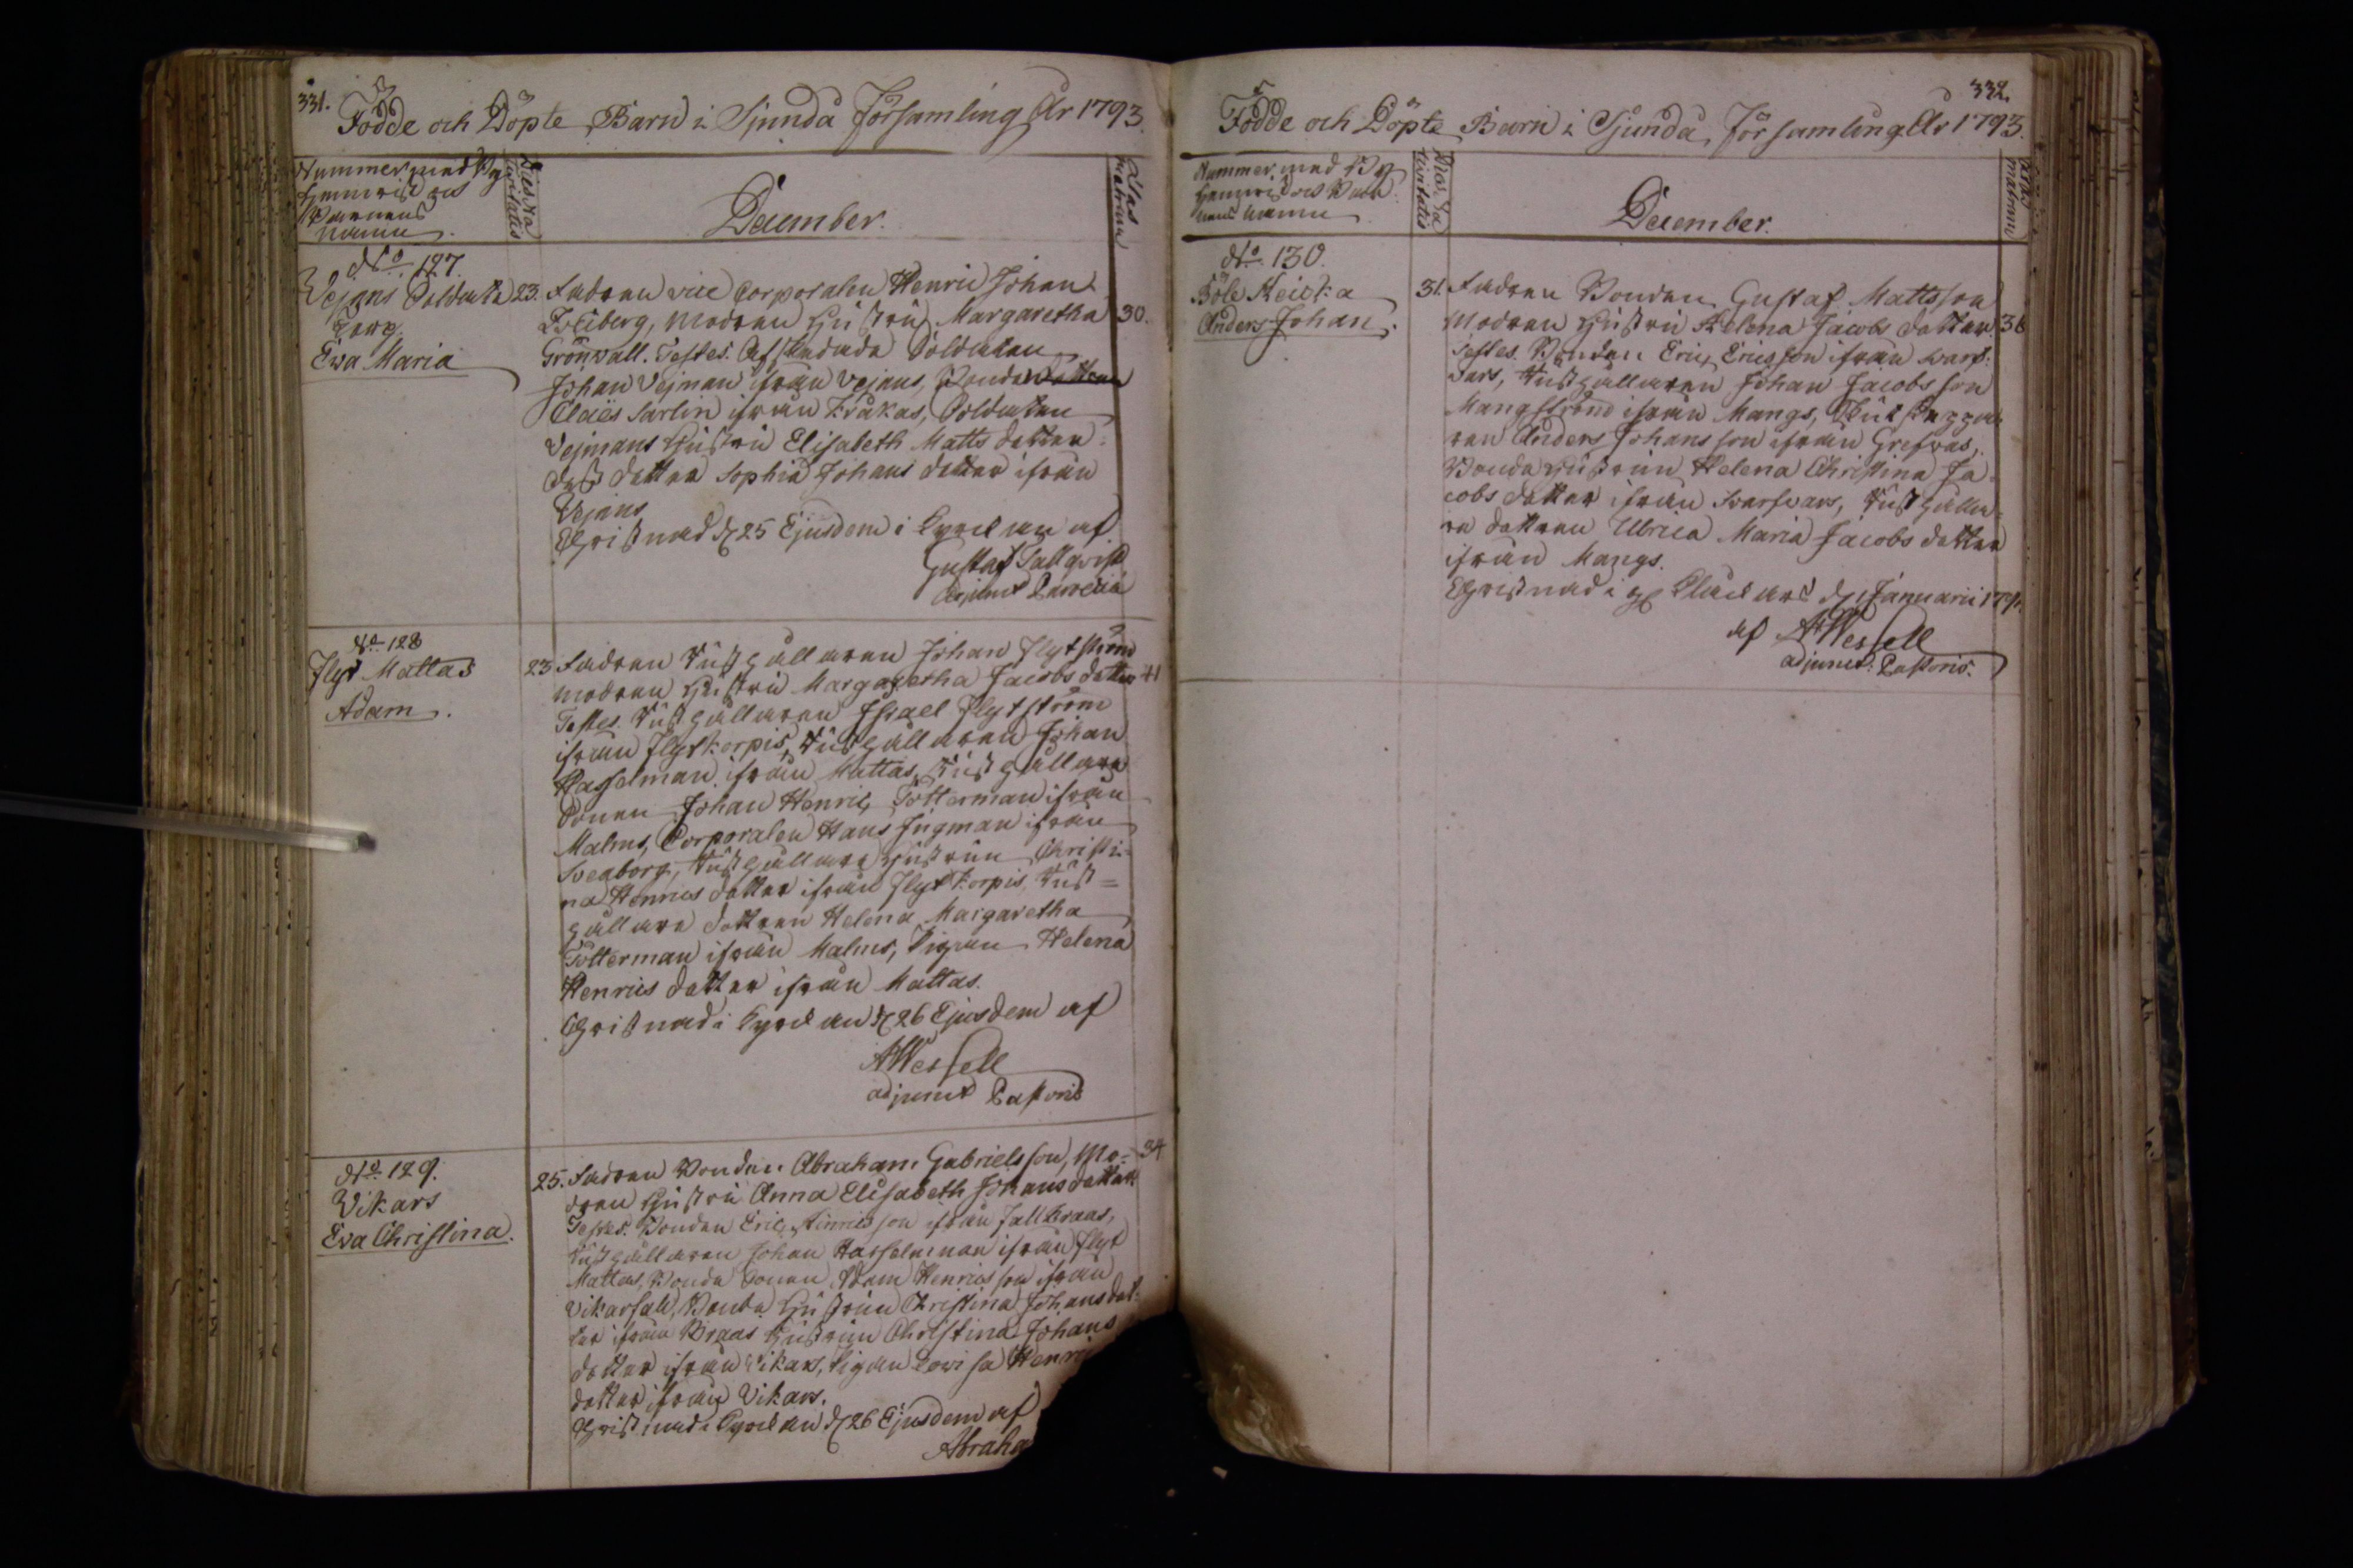 331.
Födde och Döpte Barn i Sjundå Församling År 1793.
Nummer med By
Hemvist och
Barnens
namn.
Dies Na
tivitatis
December.
Ætas
matrum
No. 127.
Vejans Soldate
torp.
Ewa Maria
23. Fadren vice Corporalen Henric Johan
berg, Modren Hustru Margaretha 30.
Grönwall. Testes. Afskedade Soldaten
Johan Vejman ifrån Vejans, Bonde
Claës Sarlin ifrån Kråkas, Soldaten
Vejmans Hustru Elisabeth Matts dotter
dess dotter Sophia Johans dotter ifrån
Vejans
Christnad d. 25 Ejusdem i Kyrckan af
Gustaf Tallqvist
Adjunct Paroecia
No. 128
Flyt Mattas
Adam.
23 Fadren Rusthållaren Johan Flytström
Modren Hustru Margaretha Jacobs dotter 41
Testes. Rusthållaren Israel Flytström
ifrån Flytkorpis, Rusthållaren Johan
Hasselman ifrån Mattas, Rusthållare
Sonen Johan Henric Totterman ifrån
Malms, Corporalen Hans Jugman ifrån
Sveaborg, Rusthållare Hustrun Christi=
na Henrics dotter ifrån Flytkorpis, Rust=
hållare dottren Helena Margaretha
Totterman ifrån Malms, Pigan Helena
Henrics dotter ifrån Mattas.
Christnad i Kyrckan d. 26 Ejusdem af
AWessell
adjunct Pastoris
No. 129.
Vikars
Eva Christina.
25. Fadren Bonden Abraham Gabrielsson, Mo= 34
dren Hustru Anna Elisabeth Johans dotter.
Testes. Bonden Eric Hinricsson ifrån Fallbraas,
Rusthållaren Johan Hasselman ifrån Flyt
Mattas, Bonde Sonen Adam Henricsson ifrån
Vikars, Bonde Hustrun Christina Johans dot=
ter ifrån Braas Hustrun Christina Johans
dotter ifrån Vikars, Pigan Lovisa Henri
dotter ifrån Vikars.
Christnad i Kyrckan d. 26 Ejusdem af
Abraha
332.
Födde och Döpte Barn i Sjundå Församling År 1793.
Nummer med By
Hemvist och Bar
nens namn
Dies Na
tivitatis
December.
Ætas
matrum
No. 130.
Böle Keicka
Anders Johan.
31. Fadren Bonden Gustaf Mattsson
Modren Hustru Helena Jacobs dotter 36
Testes. Bonden Eric Ericsson ifrån Svarf=
vars, Rusthållaren Johan Jacobsson
Mangström ifrån Mangs,
ren Anders Johansson ifrån Grefvas,
Bonda Hustrun Helena Christina Ja=
cobs dotter ifrån Svarfvars, Rusthålla=
re dottren Ulrica Maria Jacobs dotter
ifrån Mangs.
Christnad i Kluckars d. 1 Januarii 1794.
af AWessell
adjunct: Pastoris.